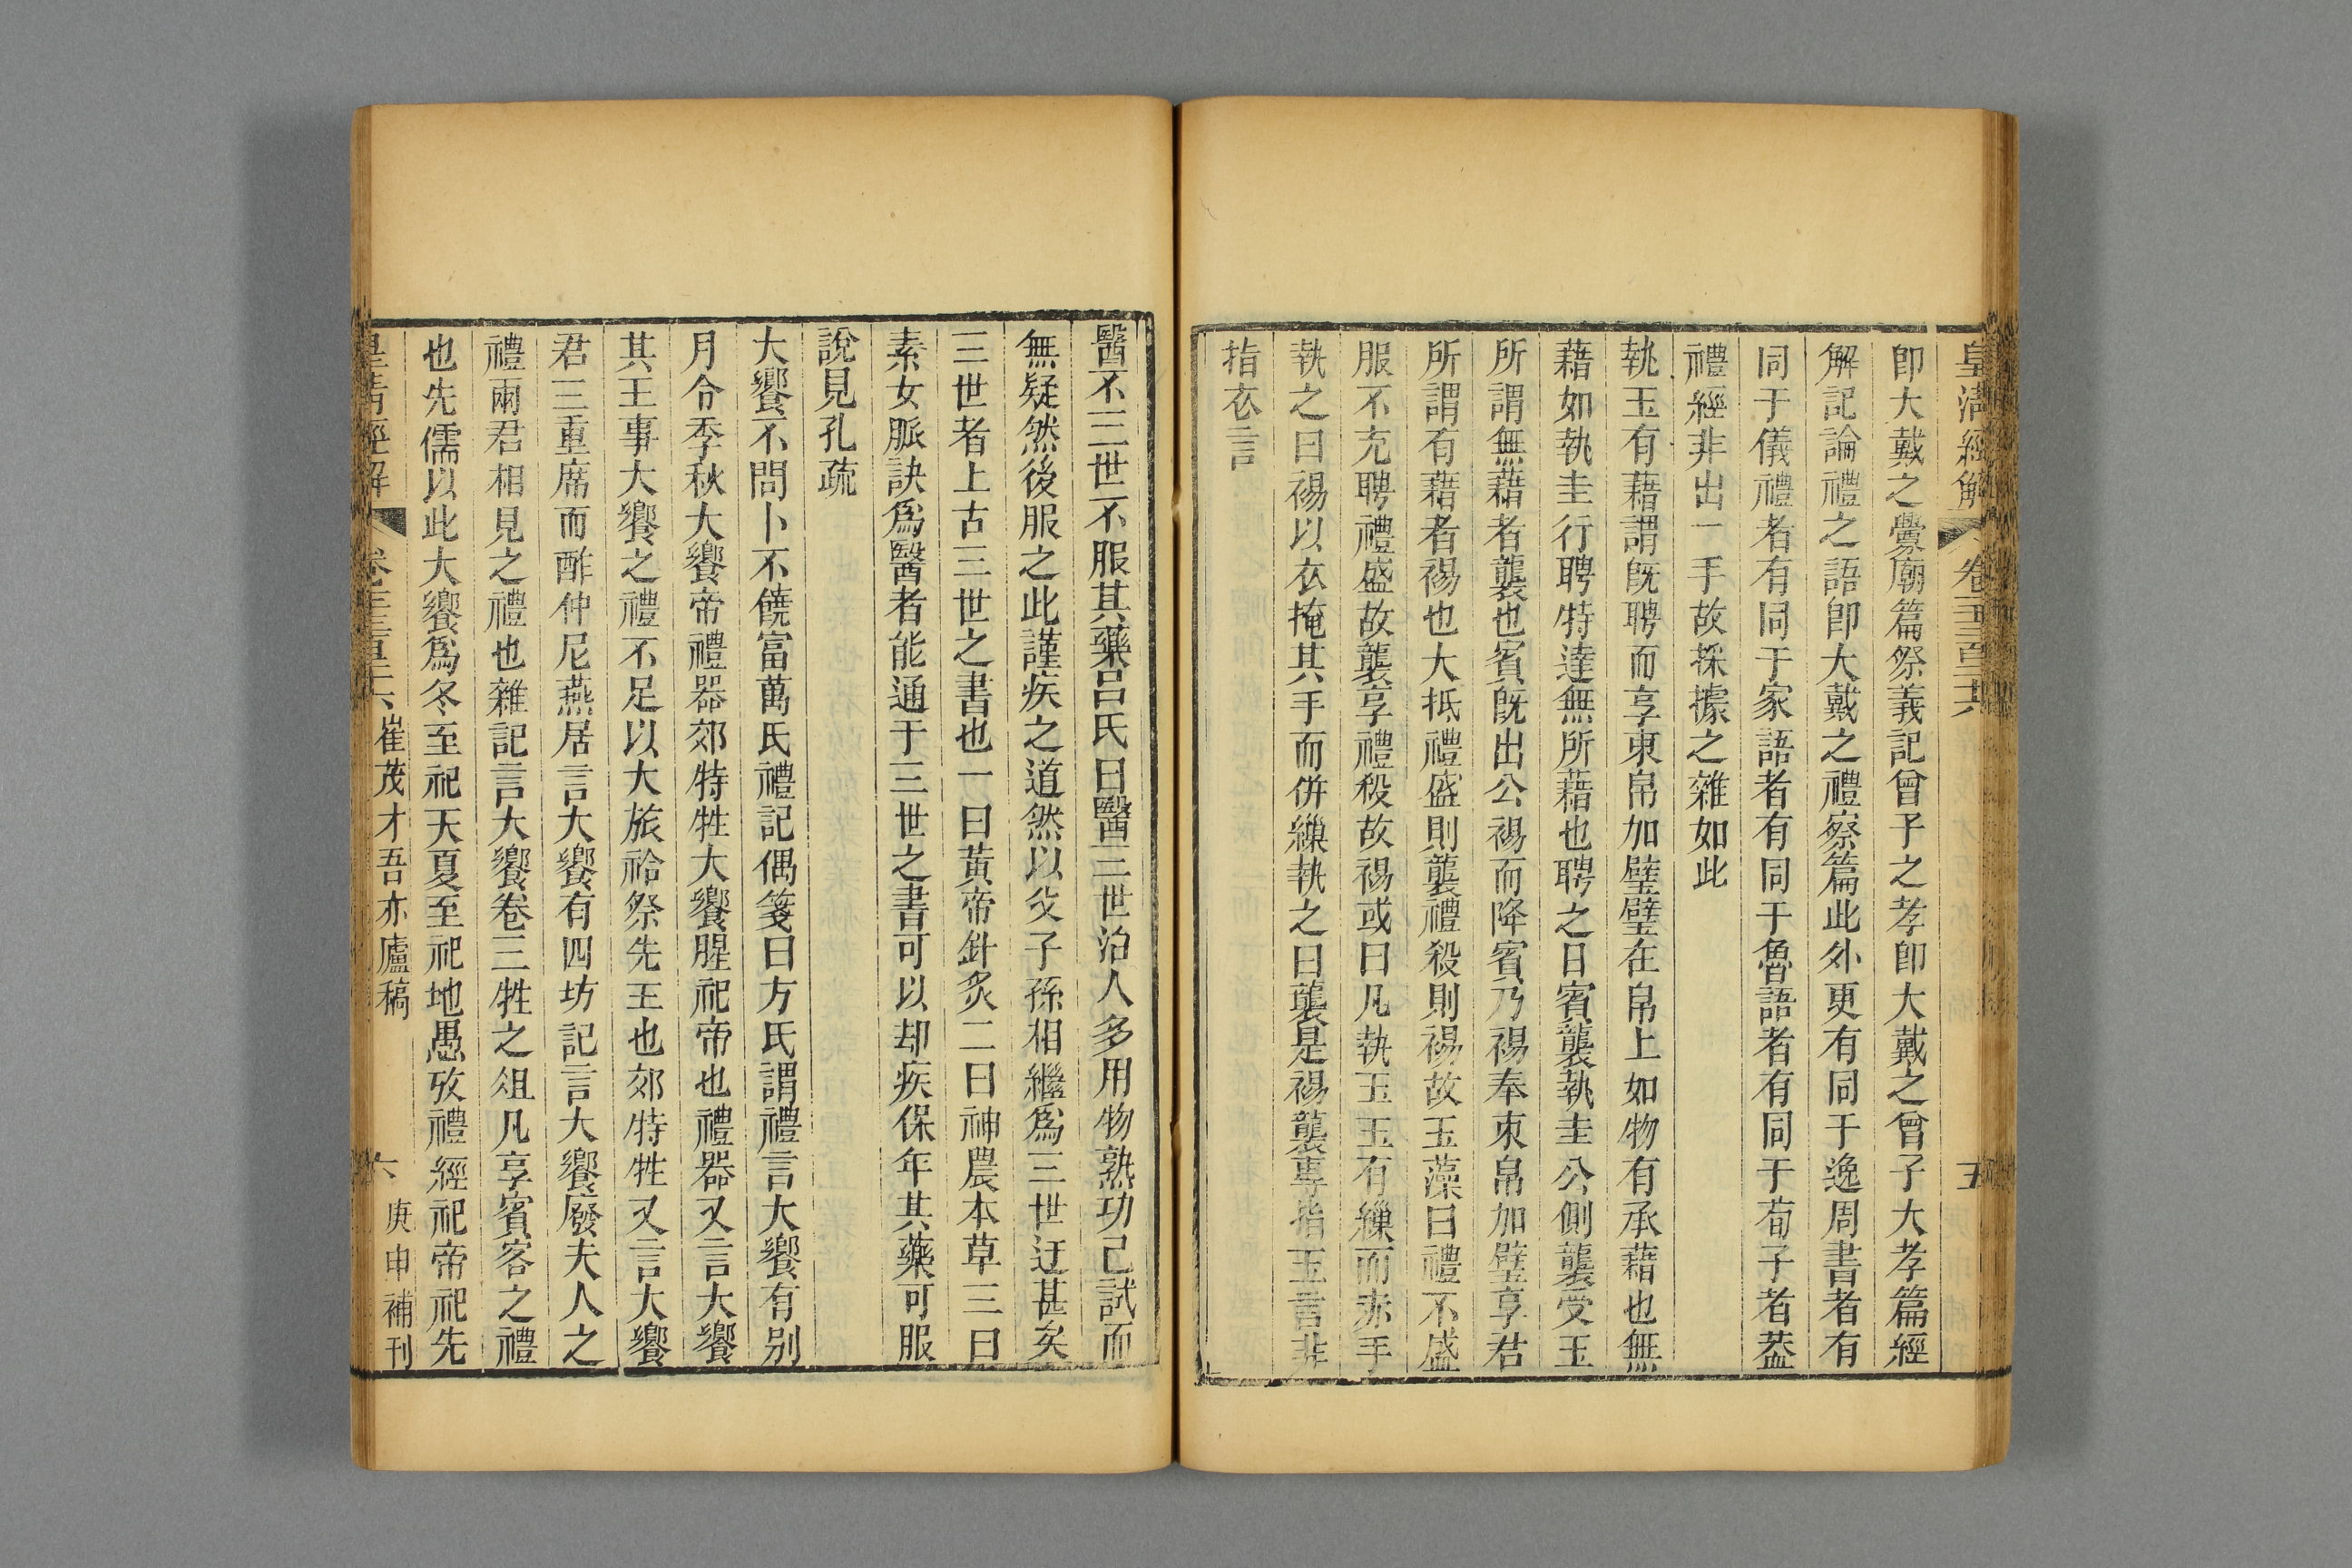 皇清經解 卷一千三百二十六 五
卽大戴之釁廟篇祭義記曾子之孝卽大戴之曾子大孝篇經
解記論禮之語卽大戴之禮察篇此外更有同于逸周書者有
同于儀禮者有同于家語者有同于魯語者有同于荀子者葢
禮經非出一手故採據之雜如此
執玉有藉謂旣聘而享束帛加璧璧在帛上如物有承藉也無
藉如執圭行聘特達無所藉也聘之日賓襲執圭公側襲受玉
所謂無藉者襲也賓旣出公裼而降賓乃裼奉束帛加璧享君
所謂有藉者裼也大抵禮盛則襲禮殺則裼故玉藻曰禮不盛
服不充聘禮盛故襲享禮殺故裼或曰凡執玉玉有繅而赤手
執之曰裼以衣掩其手而併繅執之曰襲是裼襲專指玉言非
指衣言
醫不三世不服其藥呂氏曰醫三世治人多用物熟功已試而
無疑然後服之此謹疾之道然以父子孫相繼爲三世迂甚矣
三世者上古三世之書也一曰黃帝針炙二曰神農本草三曰
素女脈訣爲醫者能通于三世之書可以却疾保年其藥可服
說見孔疏
大饗不問卜不饒富萬氏禮記偶箋曰方氏謂禮言大饗有別
月令季秋大饗帝禮器郊特牲大饗腥祀帝也禮器又言大饗
其王事大饗之禮不足以大旅祫祭先王也郊特牲又言大饗
君三重席而酢仲尼燕居言大饗有四坊記言大饗廢夫人之
禮兩君相見之禮也雜記言大饗卷三牲之俎凡享賓客之禮
也先儒以此大饗爲冬至祀天夏至祀地愚攷禮經祀帝祀先
皇清經解 卷一千三百二十六 崔茂才吾亦廬稿 六 庚申補刊